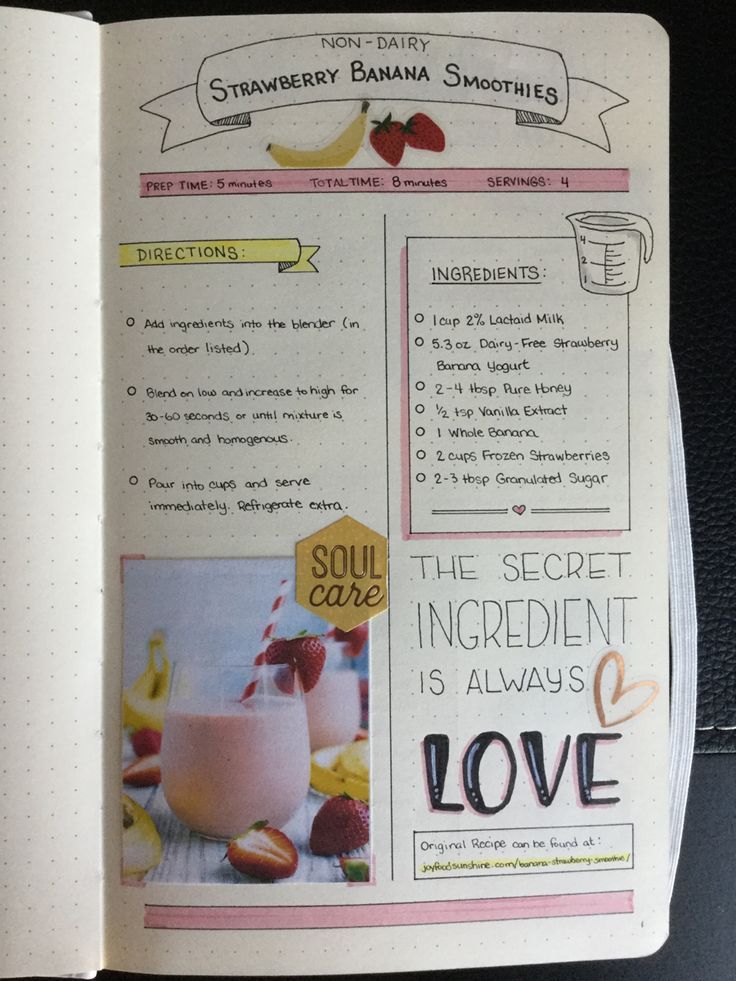 NON-DAIRY
STRAWBERRY BANANA SMOOTHIES
PREP TIME: 5 minutes TOTAL TIME: 8 minutes SERVINGS: 4
DIRECTIONS:
Add ingredients into the blender (in
the order listed)
Blend on low and increase to high for
30-60 seconds or until mixture is
smooth and homogenous.
Pour into cups and serve
immediately. Refrigerate extra.
SOUL
care
4
2
1
INGREDIENTS:
1 cup 2% Lactaid Milk
5.3 oz Dairy-Free Strawberry
Banana Yogurt
2-4 tbsp Pure Honey
1/2 tsp Vanilla Extract
1 Whole Banana
2 cups Frozen Strawberries
2-3 tbsp Granulated Sugar
THE SECRET
INGREDIENT
IS ALWAYS
LOVE
Original Recipe can be found at:
joyfoodsunshine.com/banana-strawberry-smoothie/